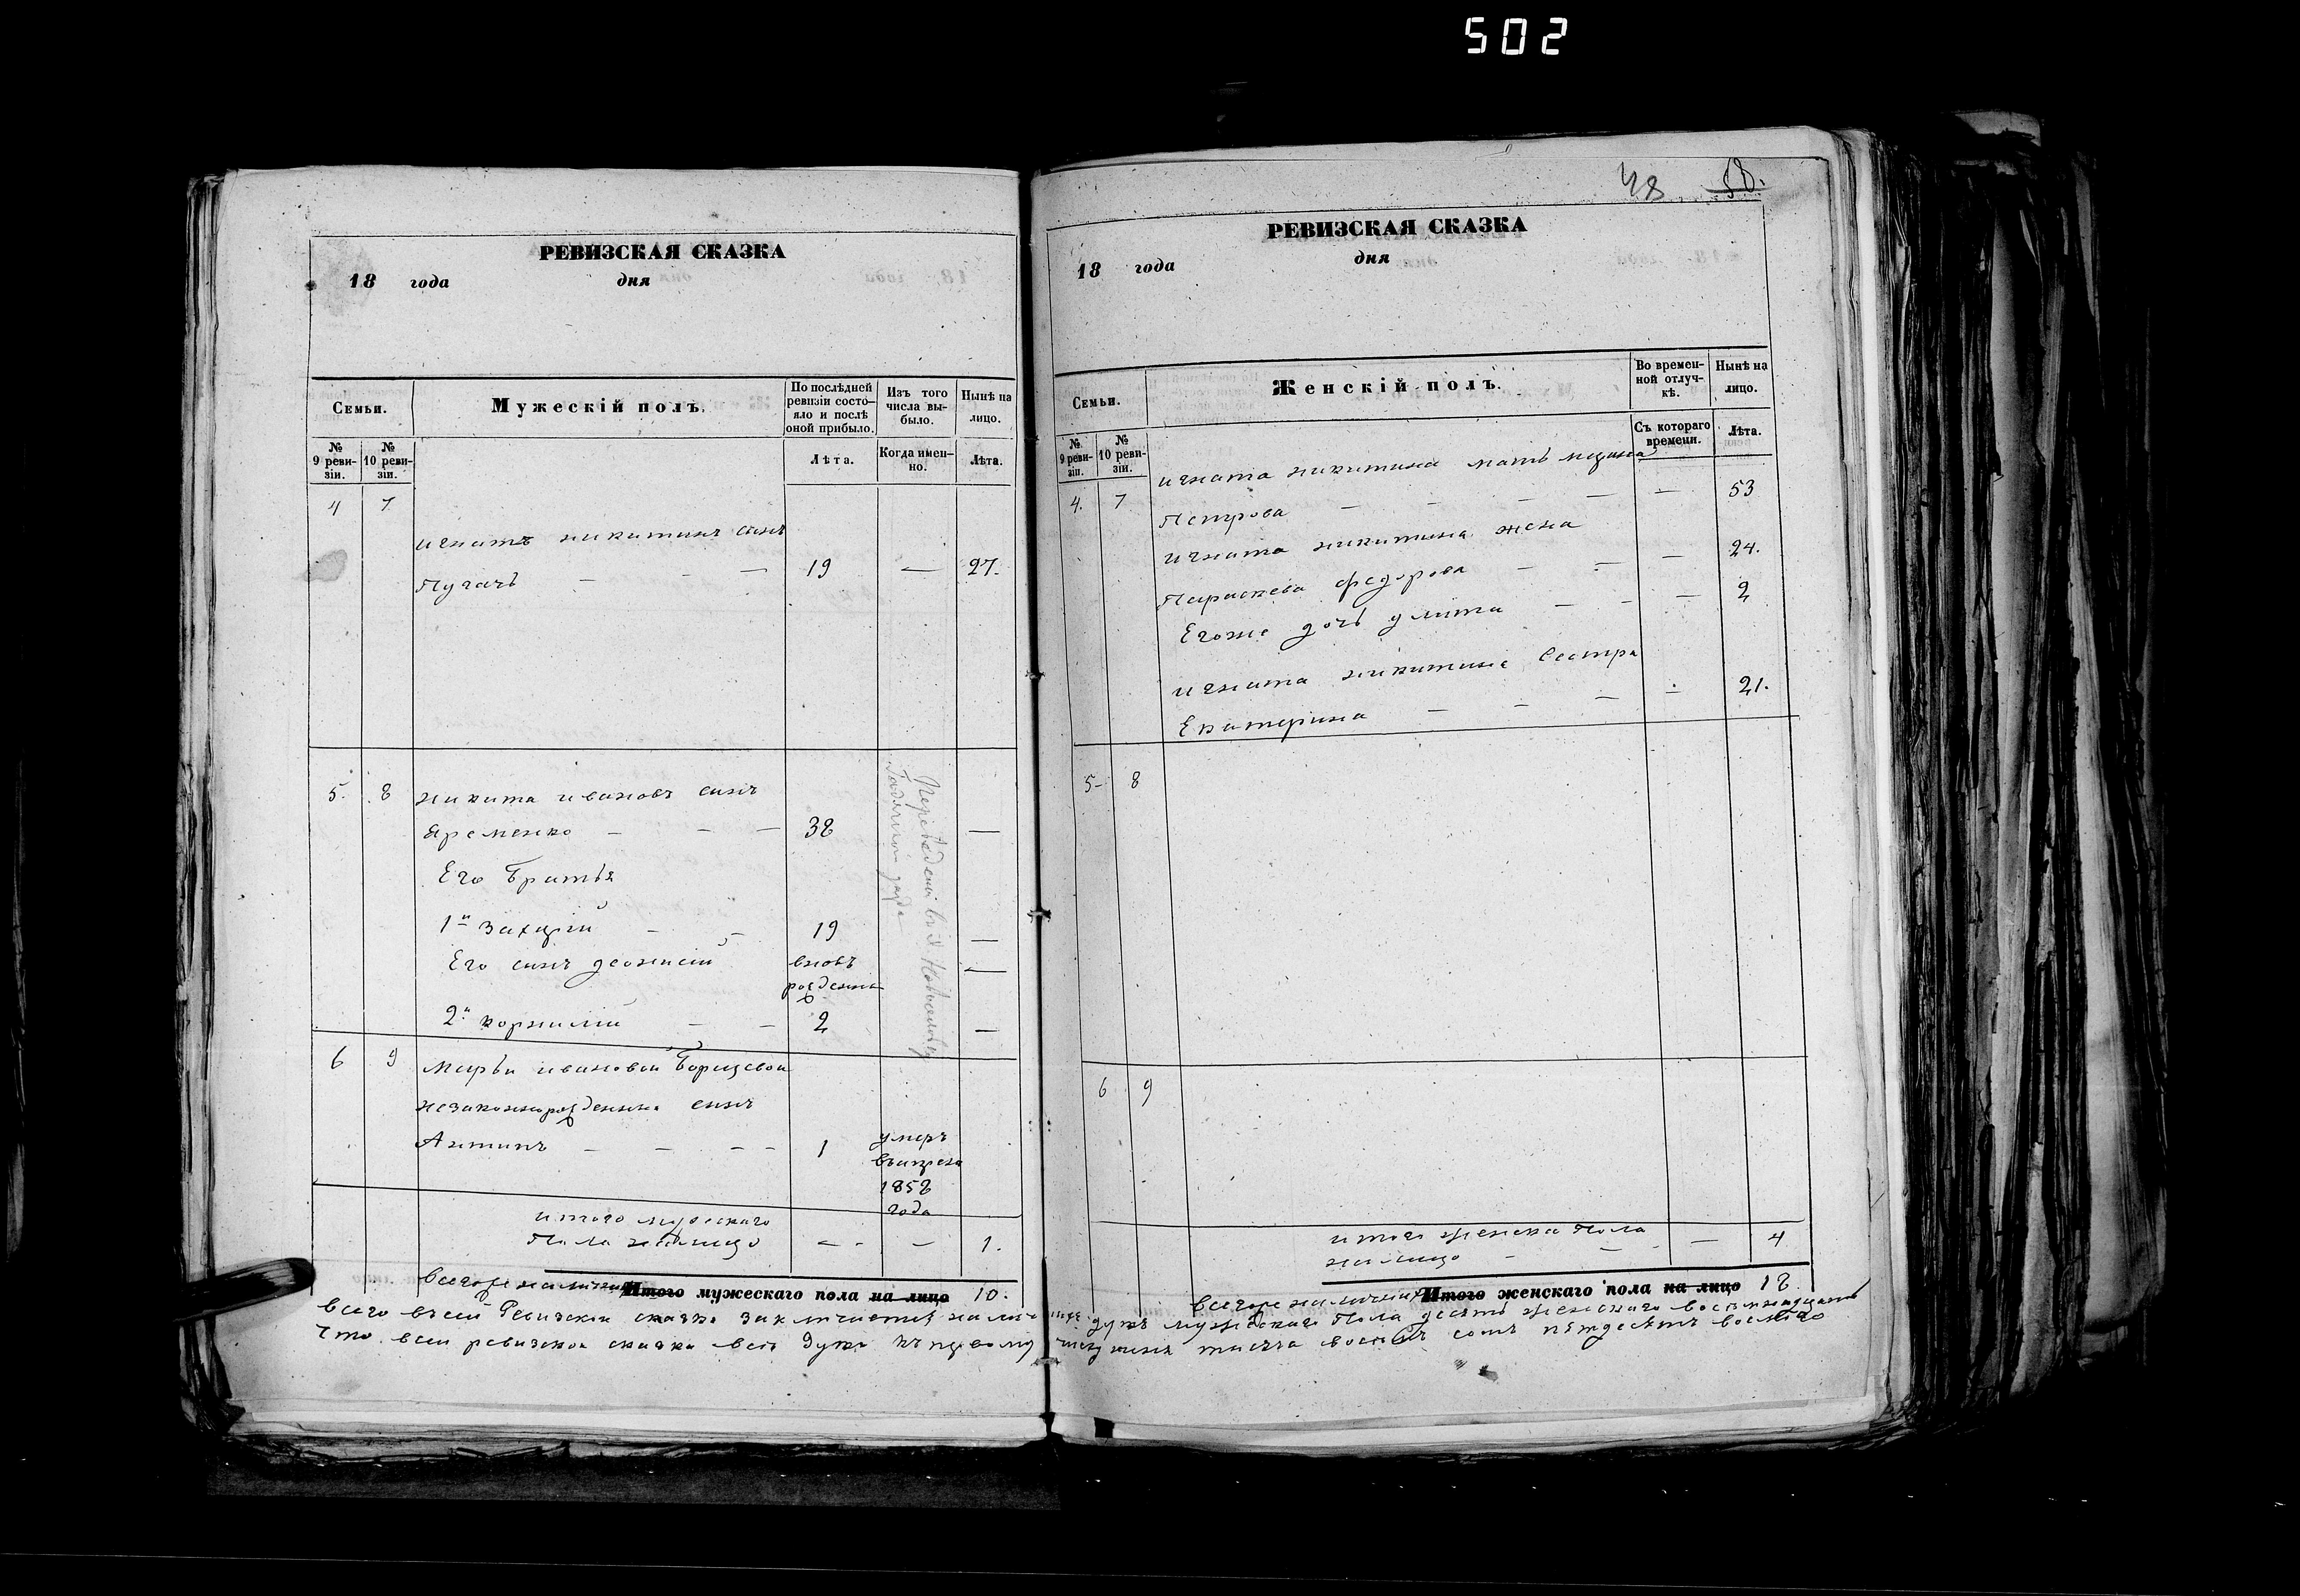 502
РЕВИЗСКАЯ СКАЗКА
18 года дня
Семьи.
Мужескій полъ.
По послѣдней ревизіи состояло и послѣ оной прибыло.
Изъ того числа выбыло.
Нынѣ на лицо.
№ 9 ревизіи.
№ 10 ревизіи.
Лѣта.
Когда именно.
Лѣта.
4 7
игнатъ никитинъ сынъ
Пугачъ — — — 19 — 27.
5. 8 никита ивановъ сынъ
Яременко — — — 38 —
Его Братья
1й Захарiй — — 19 —
Его сынъ деонисiй вновь —
рожденны
2й корнилiй — — 2 —
Переведены въ д
6 9 Марьи ивановой Борщевой
незаконнорожденны сынъ
Антипъ — — — — 1 умеръ
1852
года
итого мужескаго
Пола налицо — — 1.
всегоже наличных Итого мужескаго пола на лицо 10.
48 58.
РЕВИЗСКАЯ СКАЗКА
18 года дня
Семьи.
Женскій полъ.
Во временной отлучкѣ.
Нынѣ на лицо.
№ 9 ревизіи.
№ 10 ревизіи.
Съ котораго времени.
Лѣта.
4. 7 игната никитина мать
Петрова — — — — — 53
игната никитина жена
Параскева федорова — — — 24.
Егоже дочь улита — — — 2
игната никитина Сестра
Екатерина — — — — 21.
5 8
6 9
итого женска Пола — 4
налицо — —
всегоже наличных Итого женскаго пола на лицо 18.
всего въсей Ревизской сказке заключается налич душъ мужескаго Пола десять женскаго восемнадцать
Что всей ревизской сказки всѣ Души тысяча восемь сотъ пятдесятъ восмаго